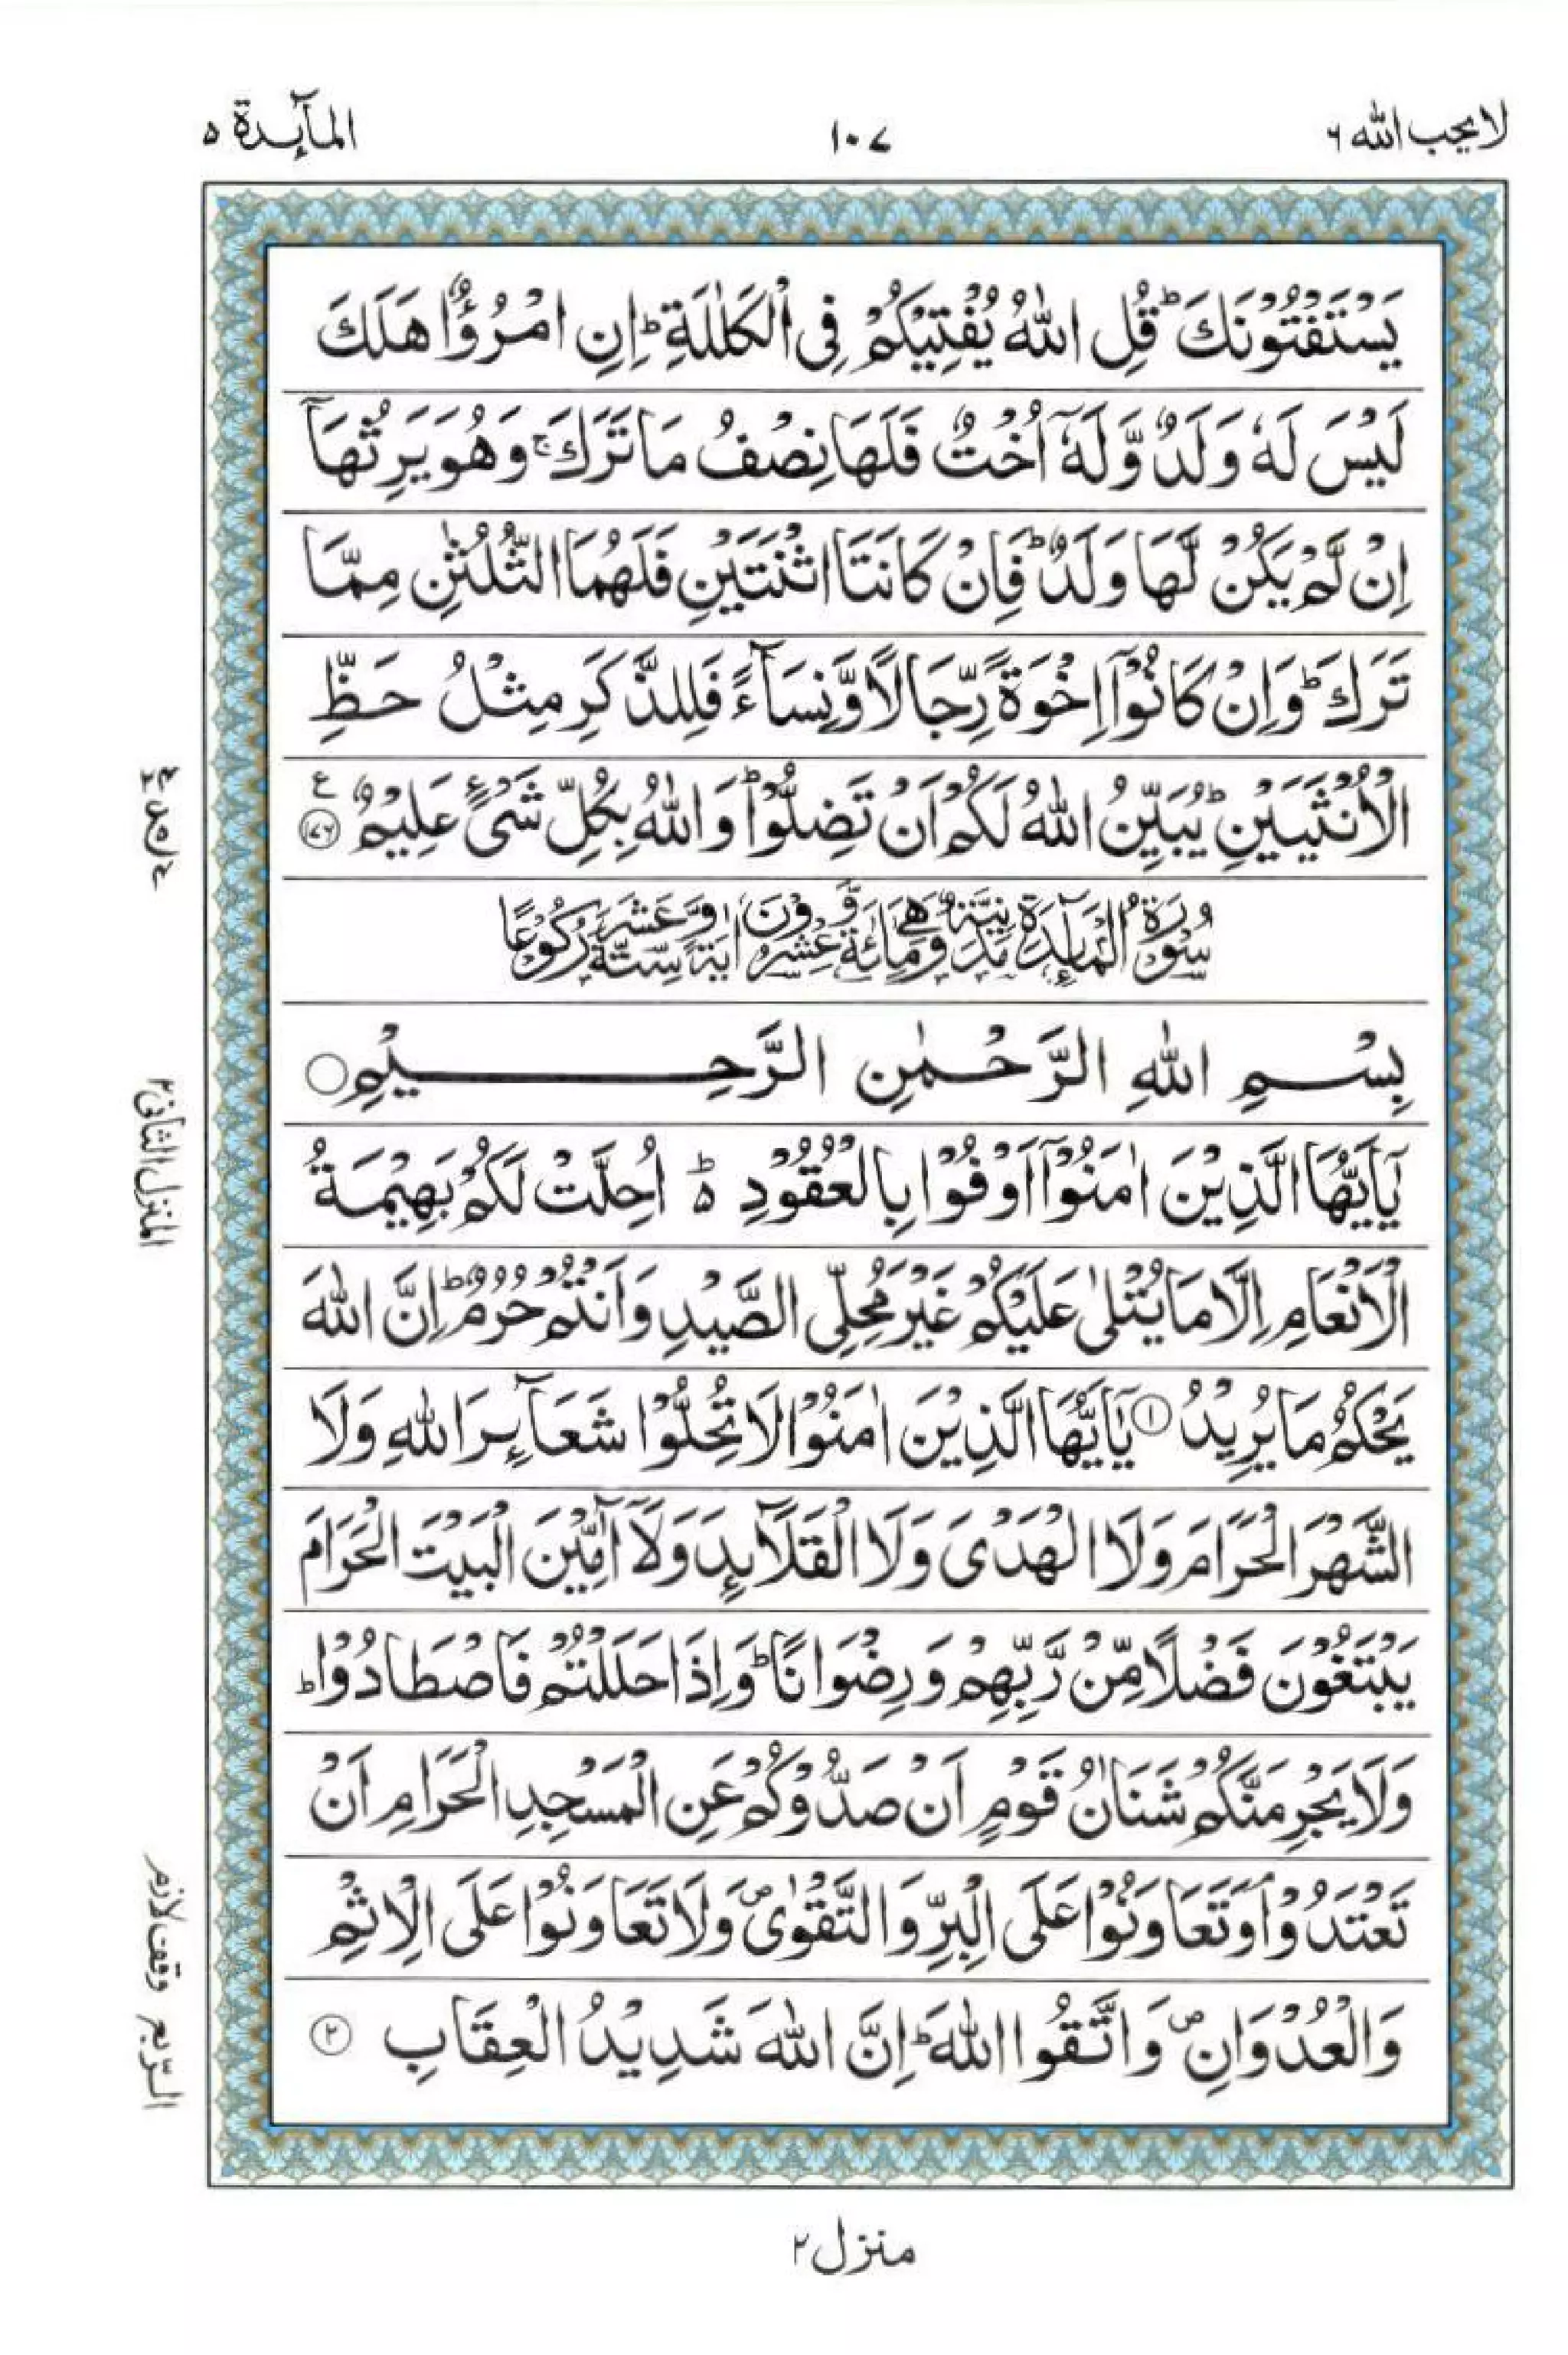 لا یحب الله ۶
۱۰۷
المآئدة ۵
یَسْتَفْتُوْنَكَ ؕ قُلِ اللّٰهُ یُفْتِیْكُمْ فِی الْكَلٰلَةِ ؕ اِنِ امْرُؤٌا هَلَكَ
لَیْسَ لَهٗ وَلَدٌ وَّلَهٗۤ اُخْتٌ فَلَهَا نِصْفُ مَا تَرَكَ ۚ وَهُوَ یَرِثُهَاۤ
اِنْ لَّمْ یَكُنْ لَّهَا وَلَدٌ ؕ فَاِنْ كَانَتَا اثْنَتَیْنِ فَلَهُمَا الثُّلُثٰنِ مِمَّا
تَرَكَ ؕ وَاِنْ كَانُوْۤا اِخْوَةً رِّجَالًا وَّنِسَآءً فَلِلذَّكَرِ مِثْلُ حَظِّ
الْاُنْثَیَیْنِ ؕ یُبَیِّنُ اللّٰهُ لَكُمْ اَنْ تَضِلُّوْا ؕ وَاللّٰهُ بِكُلِّ شَیْءٍ عَلِیْمٌ ۝۱۷۶ ع
سُوْرَةُ الْمَآئِدَةِ مَدَنِیَّةٌ وَّهِیَ مِائَةٌ وَّعِشْرُوْنَ اٰیَةً وَّسِتَّةَ عَشَرَ رُكُوْعًا
بِسْمِ اللّٰهِ الرَّحْمٰنِ الرَّحِیْمِ ۝
یٰۤاَیُّهَا الَّذِیْنَ اٰمَنُوْۤا اَوْفُوْا بِالْعُقُوْدِ ؕ۬ اُحِلَّتْ لَكُمْ بَهِیْمَةُ
الْاَنْعَامِ اِلَّا مَا یُتْلٰی عَلَیْكُمْ غَیْرَ مُحِلِّی الصَّیْدِ وَاَنْتُمْ حُرُمٌ ؕ اِنَّ اللّٰهَ
یَحْكُمُ مَا یُرِیْدُ ۝۱ یٰۤاَیُّهَا الَّذِیْنَ اٰمَنُوْا لَا تُحِلُّوْا شَعَآئِرَ اللّٰهِ وَلَا
الشَّهْرَ الْحَرَامَ وَلَا الْهَدْیَ وَلَا الْقَلَآئِدَ وَلَاۤ آٰمِّیْنَ الْبَیْتَ الْحَرَامَ
یَبْتَغُوْنَ فَضْلًا مِّنْ رَّبِّهِمْ وَرِضْوَانًا ؕ وَاِذَا حَلَلْتُمْ فَاصْطَادُوْا ؕ
وَلَا یَجْرِمَنَّكُمْ شَنَاٰنُ قَوْمٍ اَنْ صَدُّوْكُمْ عَنِ الْمَسْجِدِ الْحَرَامِ اَنْ
تَعْتَدُوْا ۘ وَتَعَاوَنُوْا عَلَی الْبِرِّ وَالتَّقْوٰی ۪ وَلَا تَعَاوَنُوْا عَلَی الْاِثْمِ
وَالْعُدْوَانِ ۪ وَاتَّقُوا اللّٰهَ ؕ اِنَّ اللّٰهَ شَدِیْدُ الْعِقَابِ ۝۲
المنزل الثانی ۲
الرّبع
وقف لازم
منزل ۲